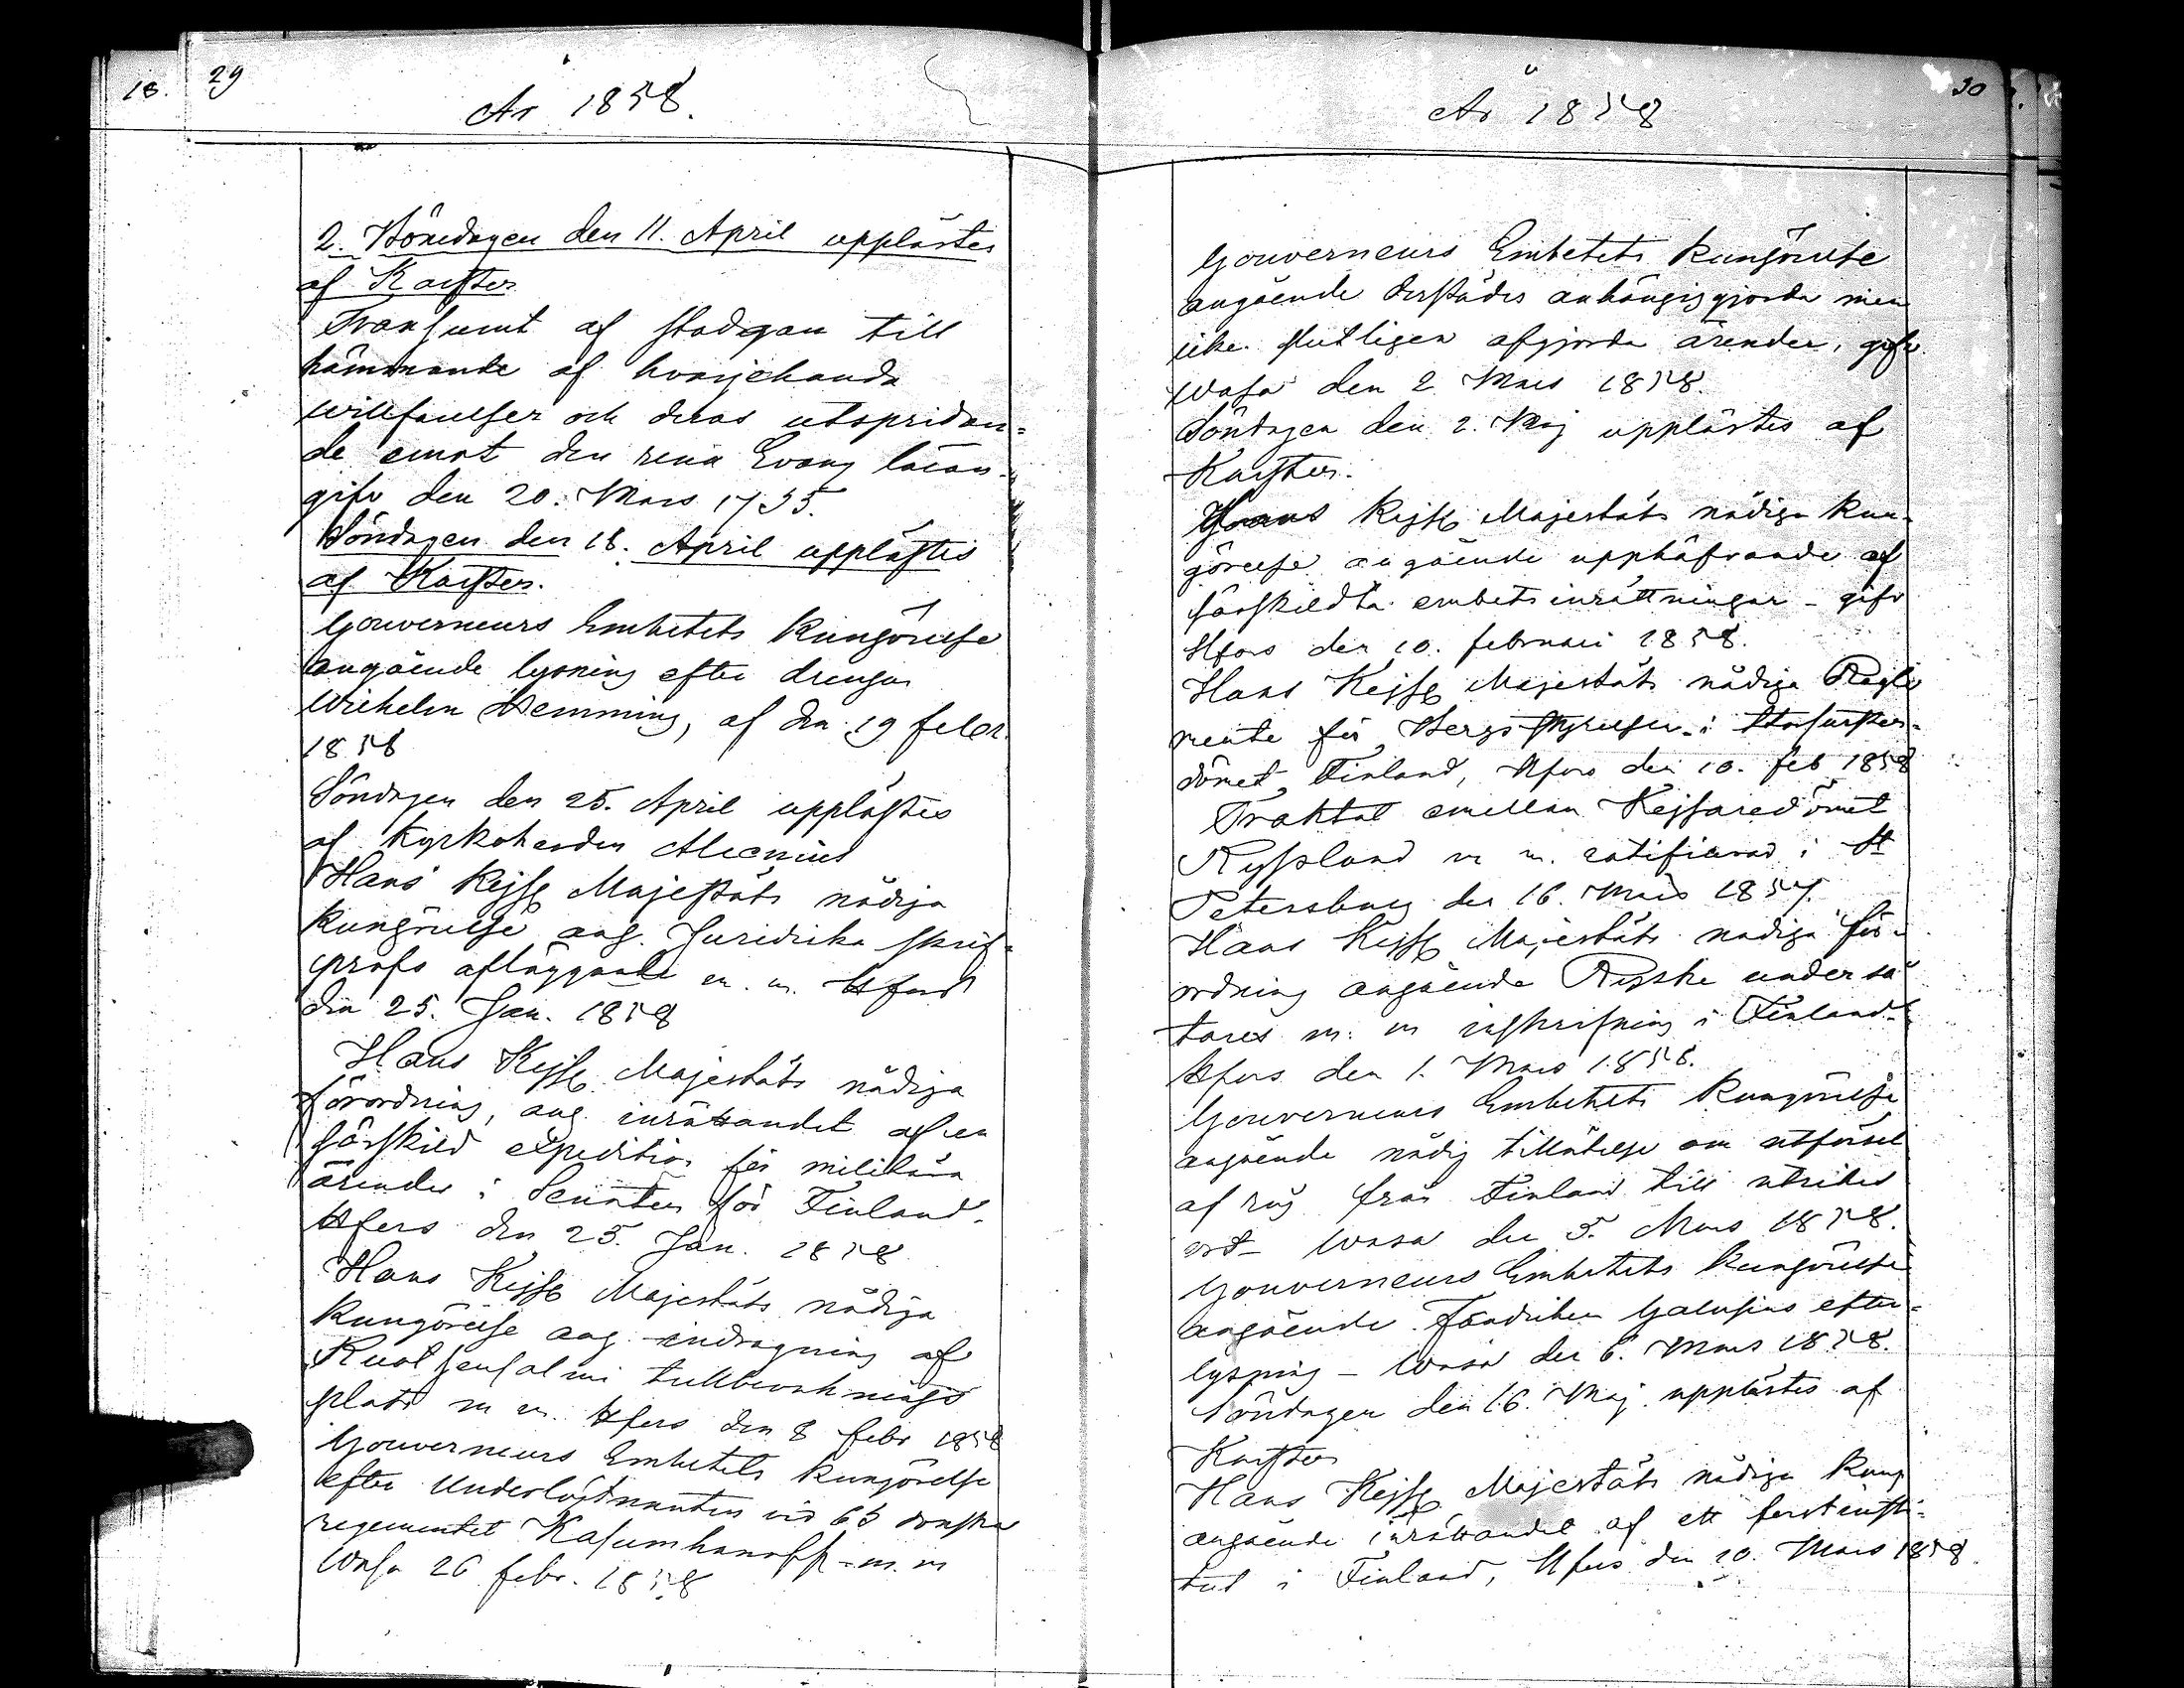 18.
29
År 1858.
2. Böndagen den 11. April upplästes
af Karsten
Transumt af stadgan till
hämmande af hvarjehanda
willfarelser och deras utspridan=
de emot den rena Evang läran
gifv den 20. Mars 1735.
Söndagen den 18. April upplästes
af Karsten.
Gouverneurs Embetets Kungörelse
angående lysning efter drengen
Wilhelm Hemming, af den 19 febr.
1858
Söndagen den 25. April upplästes
af Kyrkoherden Alcenius
Hans Kejse Majestäts nådiga
Kungörelse ang. Juridiska skrif=
profs afläggande m. m. Hfors
den 25. Jan. 1858
Hans Kejse Majestäts nådiga
förordning, ang. inrättandet af en
särskild expedition för militära
ärender i Senaten för Finland.
Hfors den 25. Jan. 1858
Hans Kejse Majestäts nådiga
Kungörelse ang indragning af
Ruotsensalmi tullbevaknings
plats m m. Hfors den 8 febr 1858
Gouverneurs Embetets Kungörelse
efter Underlöjtnanten vid 63 donska
regementet Kasumhanoff - m. m
Wasa 26 febr. 1858
År 1858
30
Gouverneurs Embetets Kungörelse
angående derstädes anhängiggjorda men
icke slutligen afgjorda ärender, gifv.
Wasa den 2 Mars 1858.
Söndagen den 2. Maj upplästes af
Karsten.
Hans Kejse Majestäts nådiga Kun-
görelse angående upphäfvande af
särskildta embets inrättningar - gifv
Hfors den 10. februari 1858.
Hans Kejse Majestäts nådiga Regle
mente för Bergsstyrelsen i Storfursten=
dömet Finland, Hfors den 10. feb 1858
Traktat emellan Kejsaredömet
Ryssland m m. ratificerad i St
Petersburg den 16. Mars 1857.
Hans Kejse Majestäts nådiga för-
ordning angående Ryske underså
tares m. m inskrifning i Finland.
Hfors den 1. Mars 1858.
Gouverneurs Embetets Kungörelse
angående nådig tillåtelse om utförsel
af råg från Finland till utrikes
ort - Wasa den 5. Mars 1858.
Gouverneurs Embetets Kungörelse
angående Fändriken Galusins efter=
lysning - Wasa den 6. Mars 1858.
Söndagen den 16. Maj upplästes af
Karsten
Hans Kejse Majestäts nådiga Kung
angående inrättandet af ett forstinsti=
tut i Finland, Hfors den 10. Mars 1858.